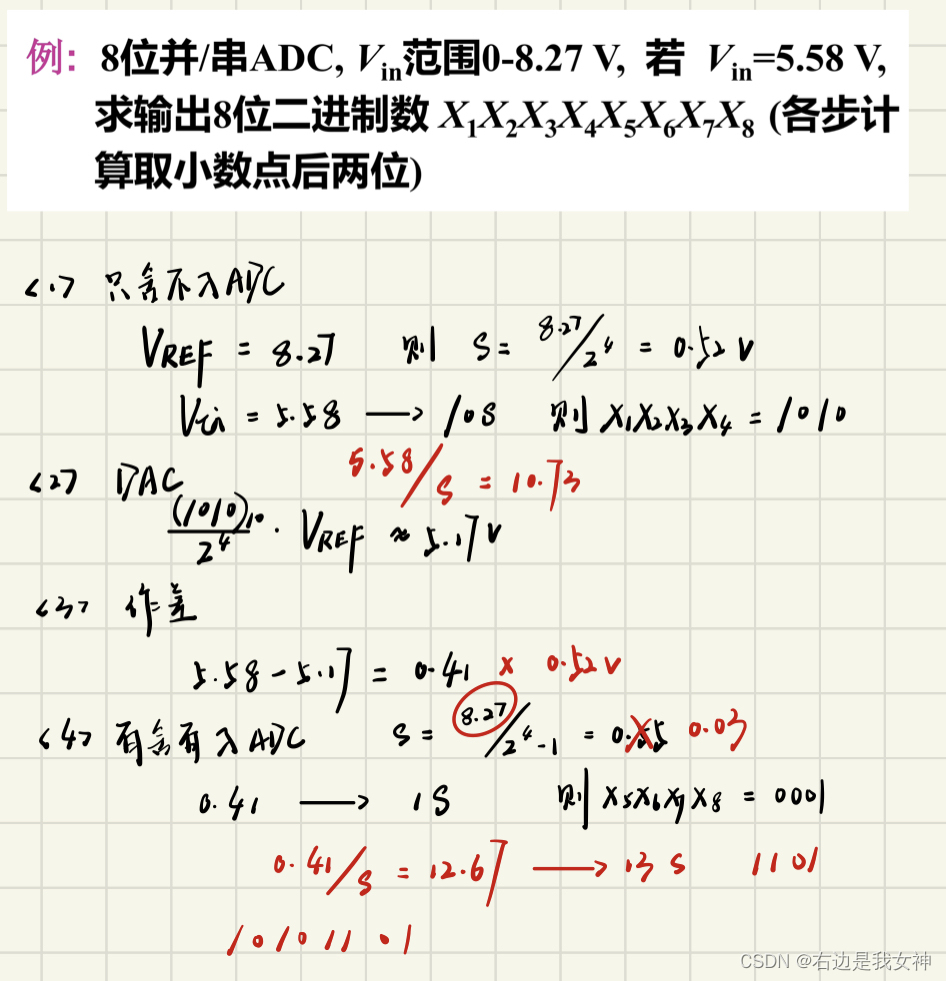 例: 8位并/串ADC, Vin范围0-8.27 V, 若 Vin=5.58 V,
求输出8位二进制数 X1X2X3X4X5X6X7X8 (各步计
算取小数点后两位)
<1> 只舍不入ADC
VREF = 8.27 则 S = 8.27/2^4 = 0.52 V
Vin = 5.58 → 10S 则 X1X2X3X4 = 1010
5.58/S = 10.73
<2> DAC
(1010)10/2^4 · VREF ≈ 5.17 V
<3> 作差
5.58 - 5.17 = 0.41 x 0.52 V
<4> 有舍有入ADC S = 8.27/2^4-1 = 0.55 0.03
0.41 → 1S 则 X5X6X7X8 = 0001
0.41/S = 12.67 → 13 S 1101
10101101
CSDN @右边是我女神